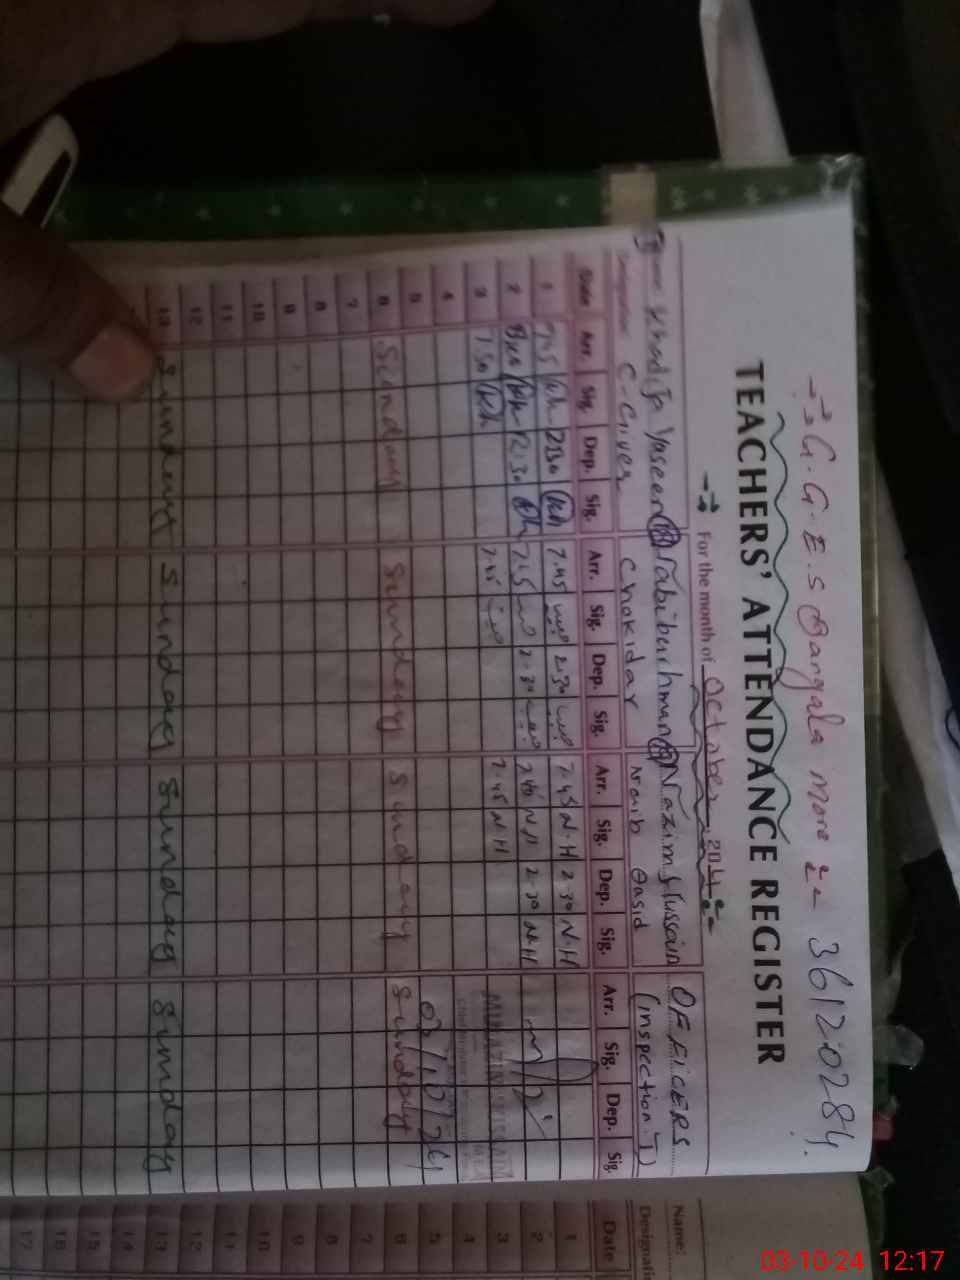 G.G.E.S Bangala more 36120284
TEACHERS' ATTENDANCE REGISTER
For the month of October 2024
Khadija Yaseen Nazim Hussain OFFICERS
Chokidar Naib Qasid (Inspection I)
Date Arr. Sig. Dep. Sig. Arr. Sig. Dep. Sig. Arr. Sig. Dep. Sig. Arr. Sig. Dep. Sig.
1 7.45 Kh 2:30 Kh 7.45 2.30 7.45 N.H 2.30 N.H
2 Kh 12:30 Kh 2.30 7.45 N.H 2.30 N.H
3 7.30 Kh 7.45 7.45 N.H
4
5 03/10/24
6 Sunday Sunday Sunday Sunday
7
8
9
10
11
12
13 Sunday Sunday Sunday Sunday
Name:
Designati
Date
1
2
3
4
5
6
7
8
9
10
11
12
13
14
15
16
17
03-10-24 12:17